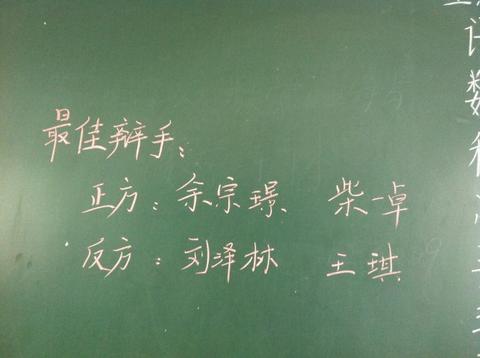 最佳辩手：
正方：余宗璟、柴一卓
反方：刘泽林 王琪
计数